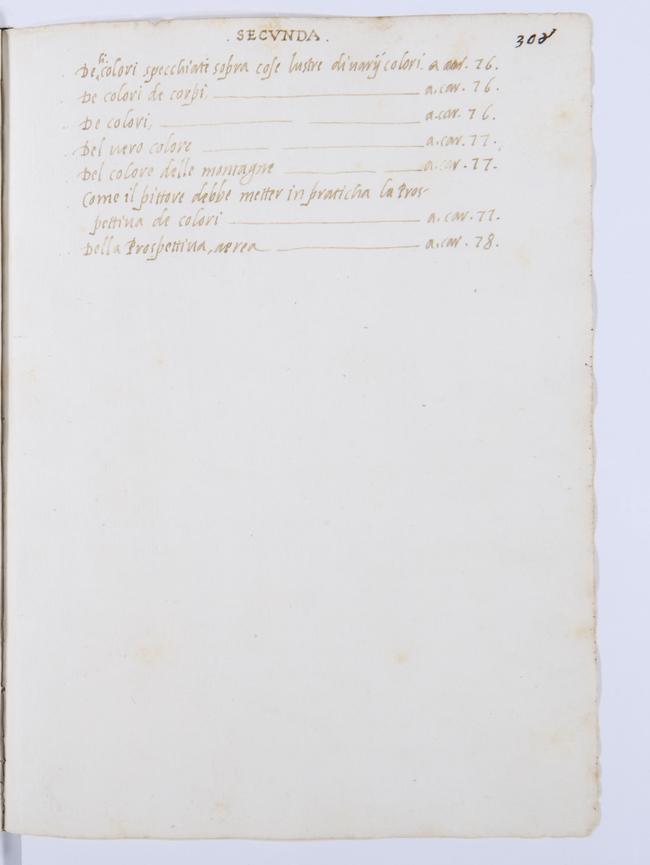 . SECVNDA .
308
De li colori specchiati sopra cose lustre di varÿ colori a car. 76.
De colori de corpi, a. car. 76.
De colori, a. car. 76.
Del uero colore a. car. 77.
Del colore delle montagne a. car. 77.
Come il pittore debbe metter in praticha la Pros-
pettiua de colori a. car. 77.
Della Prospettiua, aerea a. car. 78.